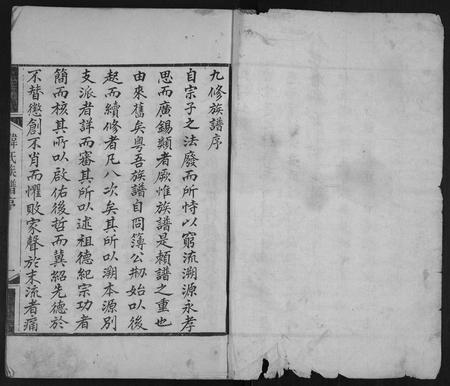 九修族譜序
自宗子之法廢而所恃以窮流溯源永孝
思而廣錫類者厥惟族譜是賴譜之重也
由來舊矣粵吾族譜自同簿公刱始以後
起而續修者凡八次矣其所以溯本源別
支派者詳而審其所以述祖德紀宗功者
簡而核其所以啟佑後哲而冀紹先德於
不替懲創不肖而懼敗家聲於末流者痛
氏族譜序